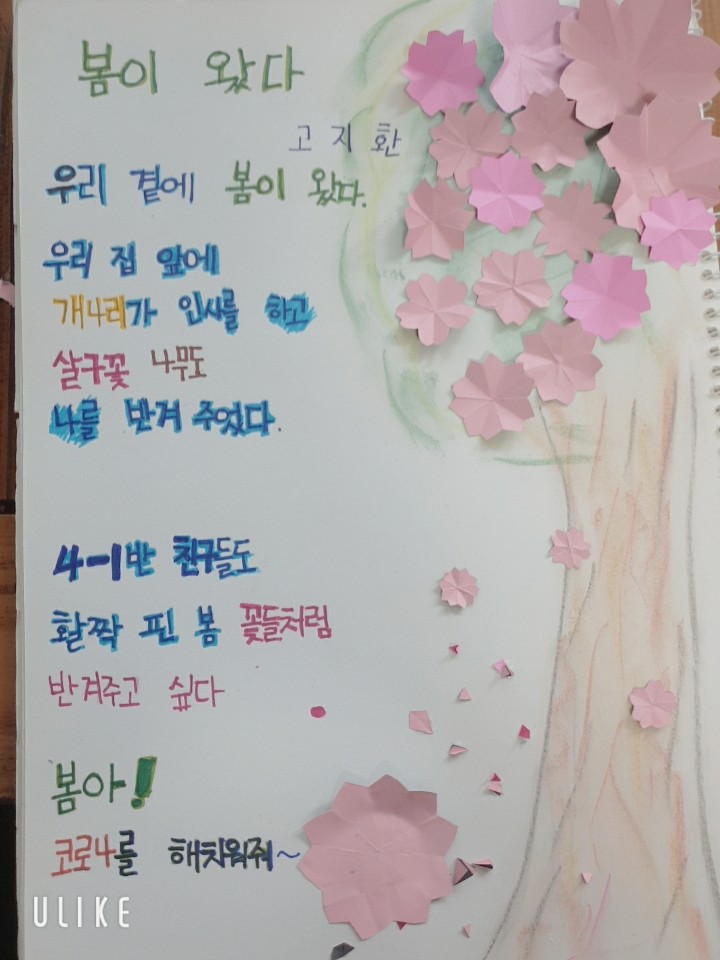 봄이 왔다
고지환
우리 곁에 봄이 왔다.
우리 집 앞에
개나리가 인사를 하고
살구꽃 나무도
나를 반겨 주었다.
4-1반 친구들도
활짝 핀 봄 꽃들처럼
반겨주고 싶다
봄아!
코로나를 해치워줘~
ULIKE